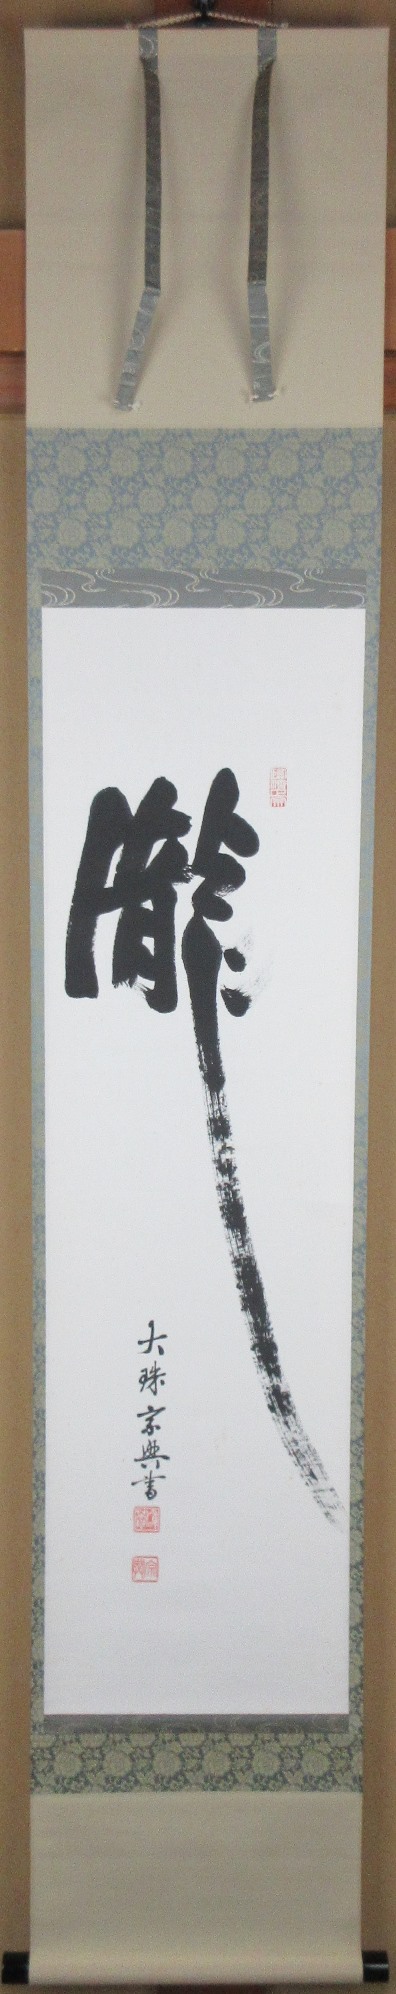 瀧
大珠宗興書